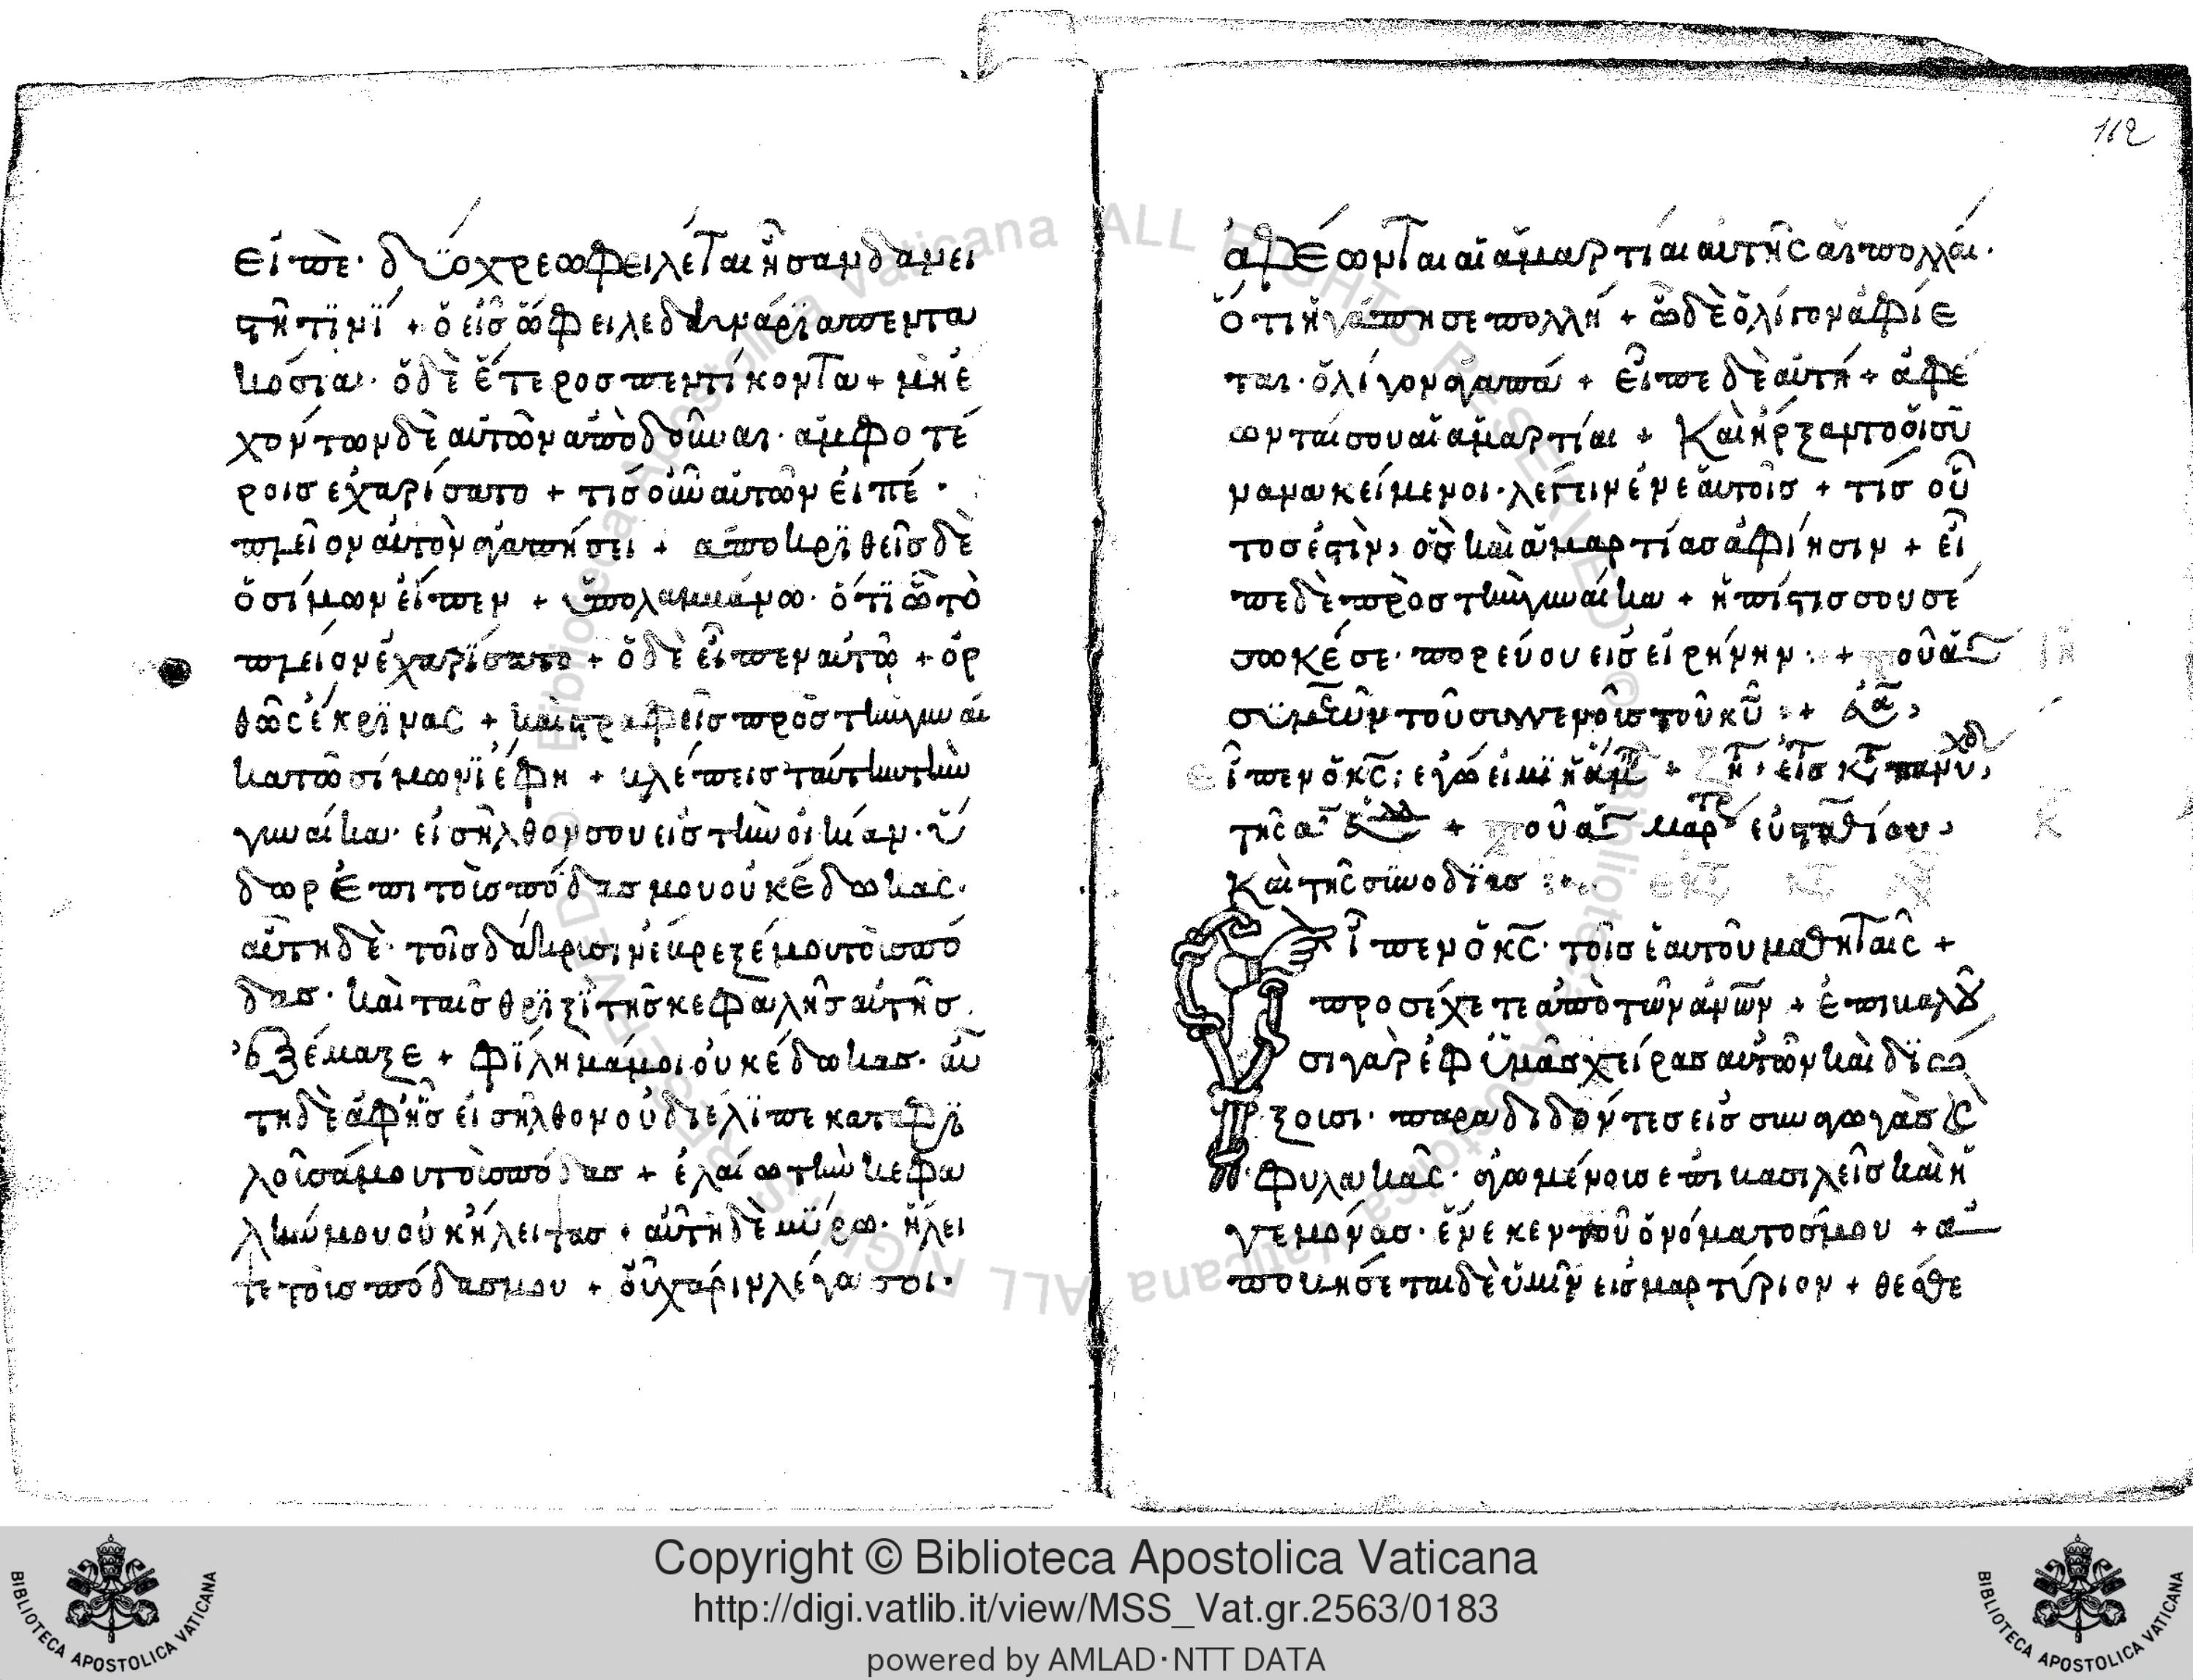 εἰπὲ· δύο χρεωφειλέται ἦσαν δανει
στῆ τινί + ὁ εἷς ὤφειλε δηνάρια πεντα
κόσια· ὁ δὲ ἕτερος πεντίκοντα + μὴ ἐ
χόντων δὲ αὐτῶν ἀποδοῦναι· ἀμφοτέ
ροις ἐχαρίσατο + τίς οὖν αὐτῶν εἰπέ·
πλεῖον αὐτὸν ἀγαπήσει + ἀποκριθεῖς δὲ
ὁ σίμων εἶπεν + ὑπολαμβάνω· ὅτι ὧ τὸ
πλεῖον ἐχαρίσατο + ὁ δὲ εἶπεν αὐτῶ + ὀρ
θῶς ἔκρινας + καὶ στραφεῖς πρὸς τὴν γυναῖ
κα τῶ σίμωνι ἔφη + βλέπεις ταύτην τὴν
γυναίκα· εἰσῆλθον σου εἰς τὴν οἰκίαν· ὕ
δωρ ἐπι τοὺς πόδας μου οὐκ ἔδωκας·
αὕτη δὲ· τοῖς δάκρισιν ἔβρεξέ μου τοὺς πό
δας· καὶ ταῖς θριξὶ τῆς κεφαλῆς αὐτῆς
ἐξέμαξε + φίλημά μοι οὐκ ἔδωκας· αὕ
τη δὲ ἀφ ἧς εἰσῆλθον οὐ διέλιπε καταφι
λοῦσά μου τοὺς πόδας + ἐλαίω τὴν κεφα
λήν μου οὐκ ἤλειψας + αὕτη δὲ μύρω· ἤλει
ψε τοὺς πόδας μου + οὗ χάριν λέγω σοι·
112
ἀφέωνται αἱ ἁμαρτίαι αὐτῆς αἱ πολλαί·
ὅτι ἠγάπησε πολλή + ὧ δὲ ὀλίγον ἀφίε
ται· ὀλίγον ἀγαπᾶ + εἶπε δὲ αὐτή + ἀφέ
ωνταί σου αἱ ἁμαρτίαι + Καὶ ἤρξαντο οἱ συ
νανακείμενοι· λέγειν ἐν ἑαυτοῖς + τίς οὗ
τος ἐστὶν, ὃς καὶ ἁμαρτίας ἀφίησιν + εἶ
πε δὲ πρὸς τὴν γυναίκα + ἡ πίστις σου σέ
σωκέ σε· πορεύου εἰς εἰρήνην
εἶπεν ὁ κς· ἐγώ εἰμι ἡ
Καὶ τῆς συνοδίας
εἶπεν ὁ κς· τοῖς ἑαυτοῦ μαθηταῖς +
προσέχετε ἀπὸ τῶν ἀνων + ἐπιβαλοῦ
σι γὰρ ἐφ ὑμᾶς χείρας αὐτῶν καὶ διώ
ξοισι· παραδιδόντες εἰς συναγωγὰς κ
φυλακὰς· ἀγωμένους ἐπι βασιλεῖς καὶ ἡ
γεμόνας· ἕνεκεν τοῦ ὀνόματός μου + ἀ
ποβήσεται δὲ ὑμῖν εἰς μαρτύριον + θέσθε
Copyright © Biblioteca Apostolica Vaticana
http://digi.vatlib.it/view/MSS_Vat.gr.2563/0183
powered by AMLAD·NTT DATA
BIBLIOTECA APOSTOLICA VATICANA
BIBLIOTECA APOSTOLICA VATICANA